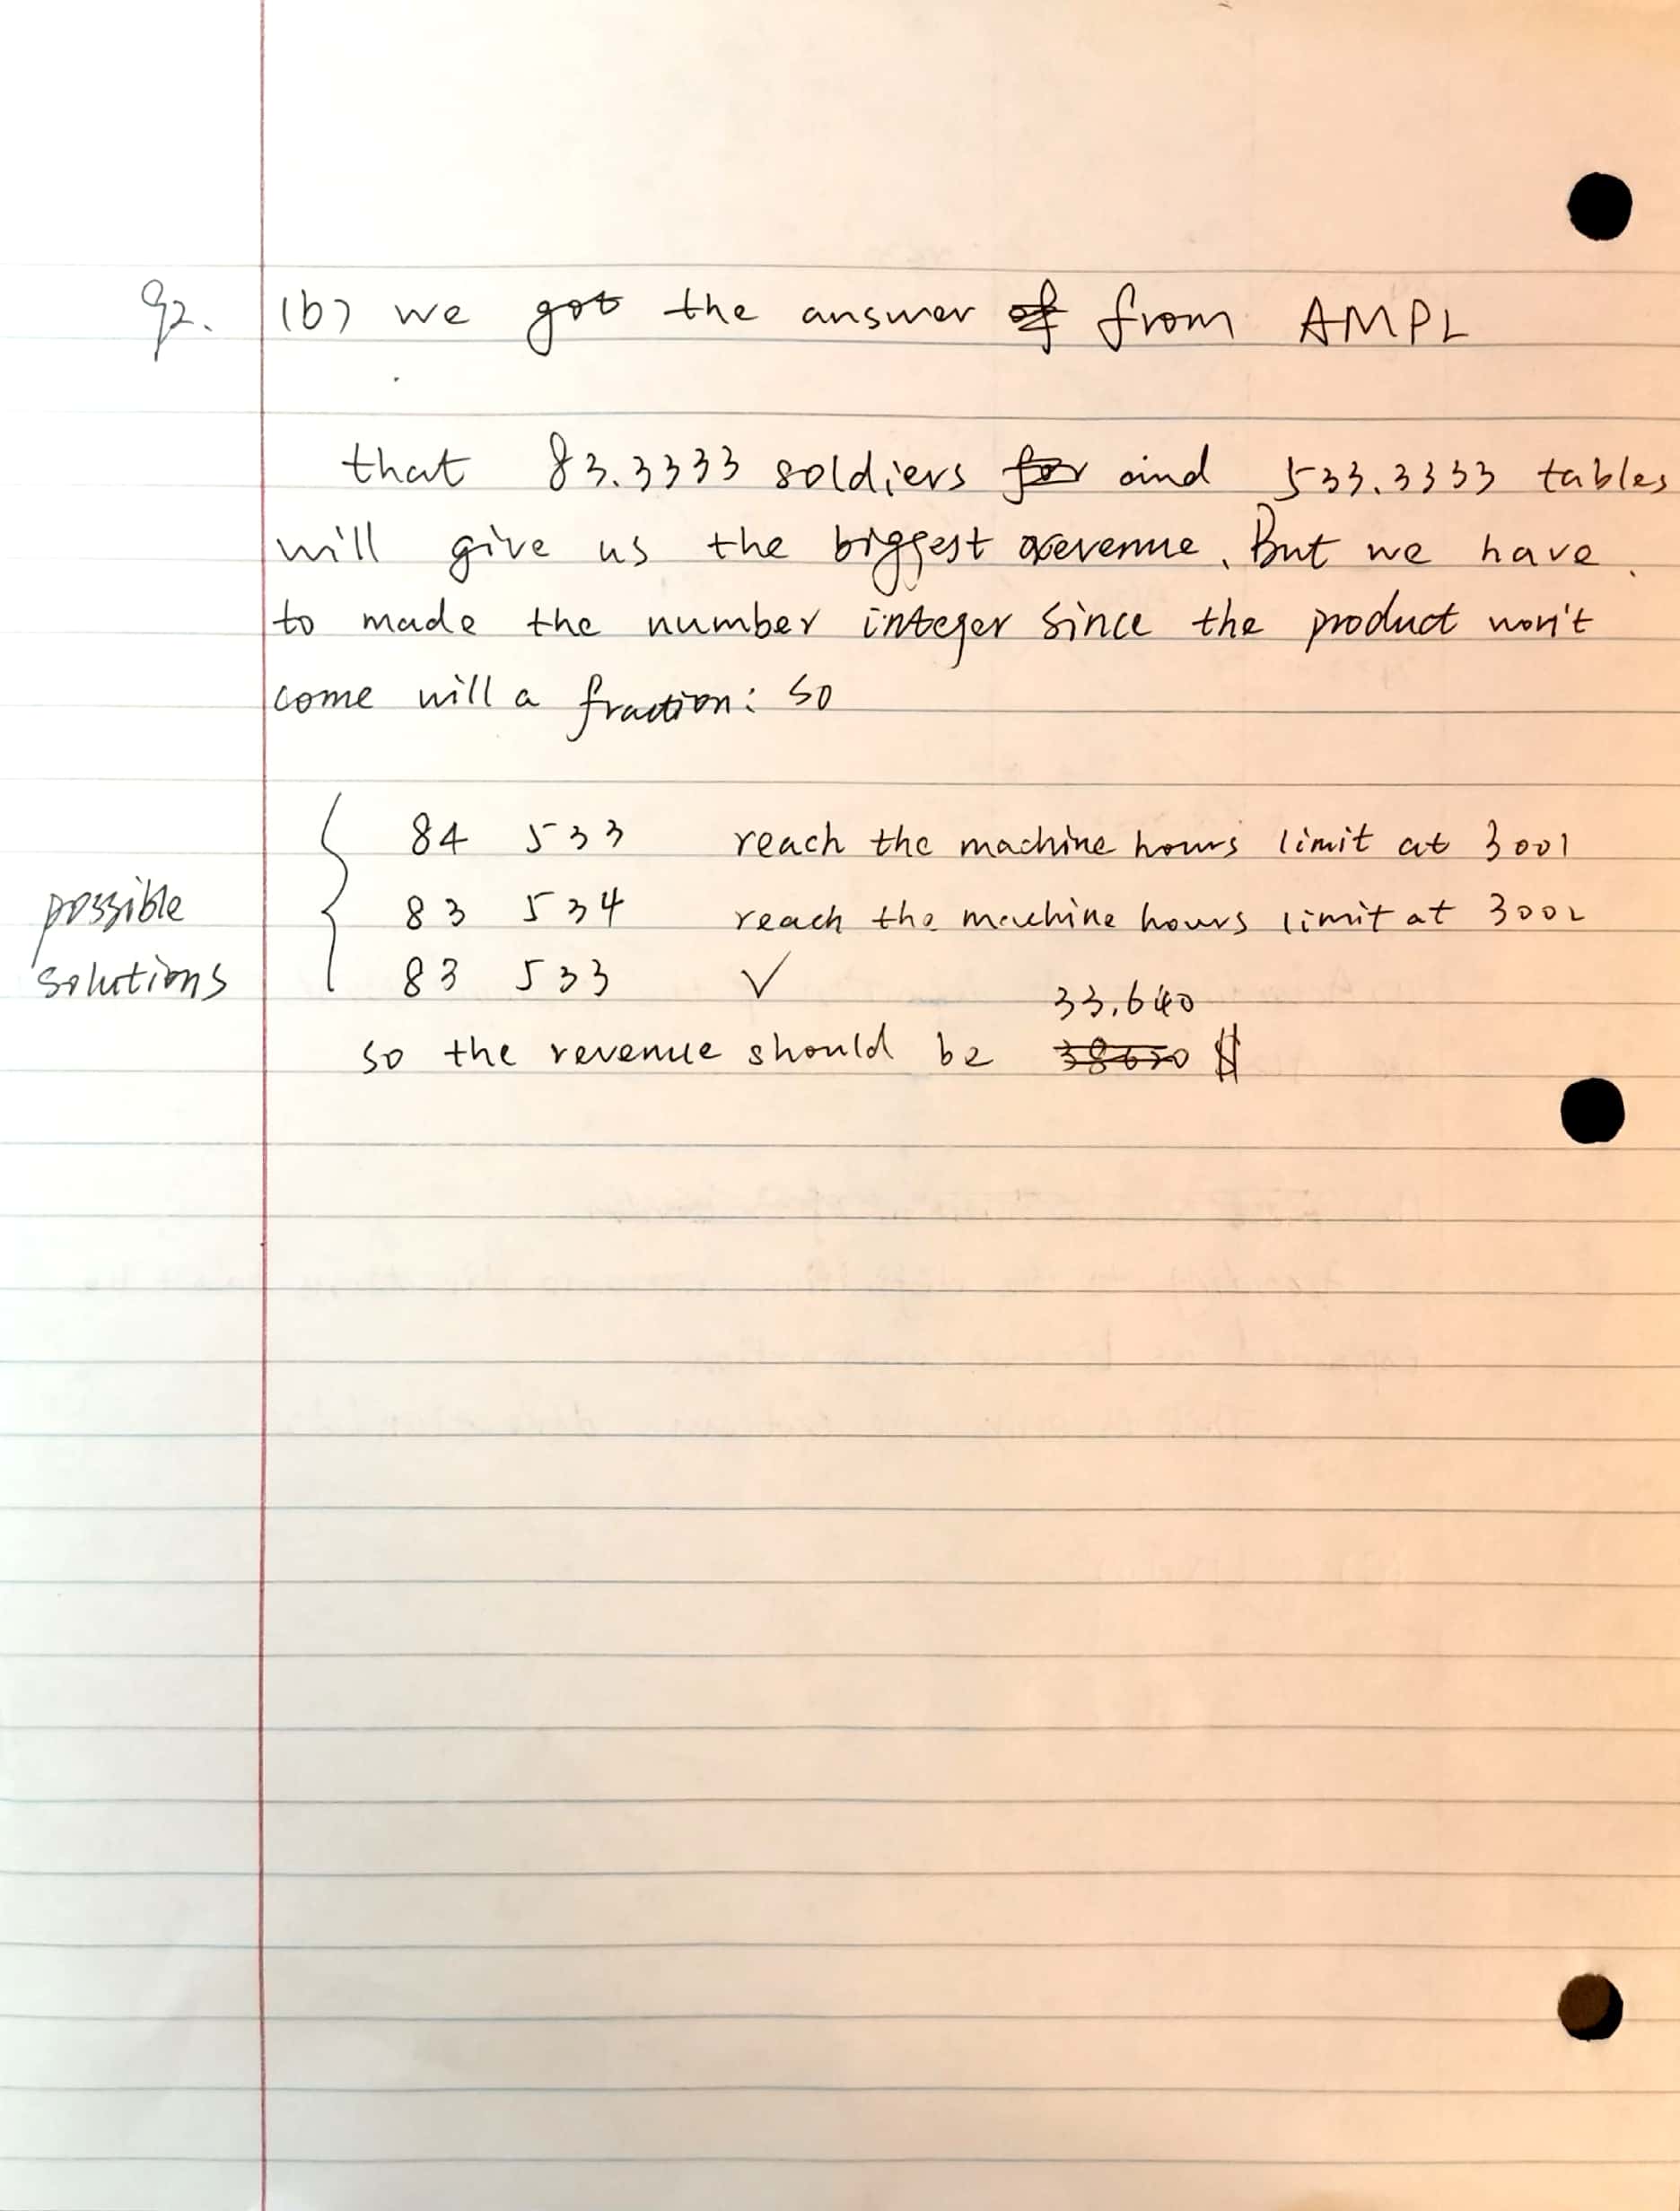 Q2. (b) we got the answer of from AMPL
that 83.3333 soldiers for and 533.3333 tables
will give us the biggest revenue. But we have
to made the number integer since the product won't
come will a fraction: so
84 533 reach the machine hours limit at 3001
83 534 reach the machine hours limit at 3002
possible
solutions
83 533 ✓
33,640
so the revenue should be 38650 $